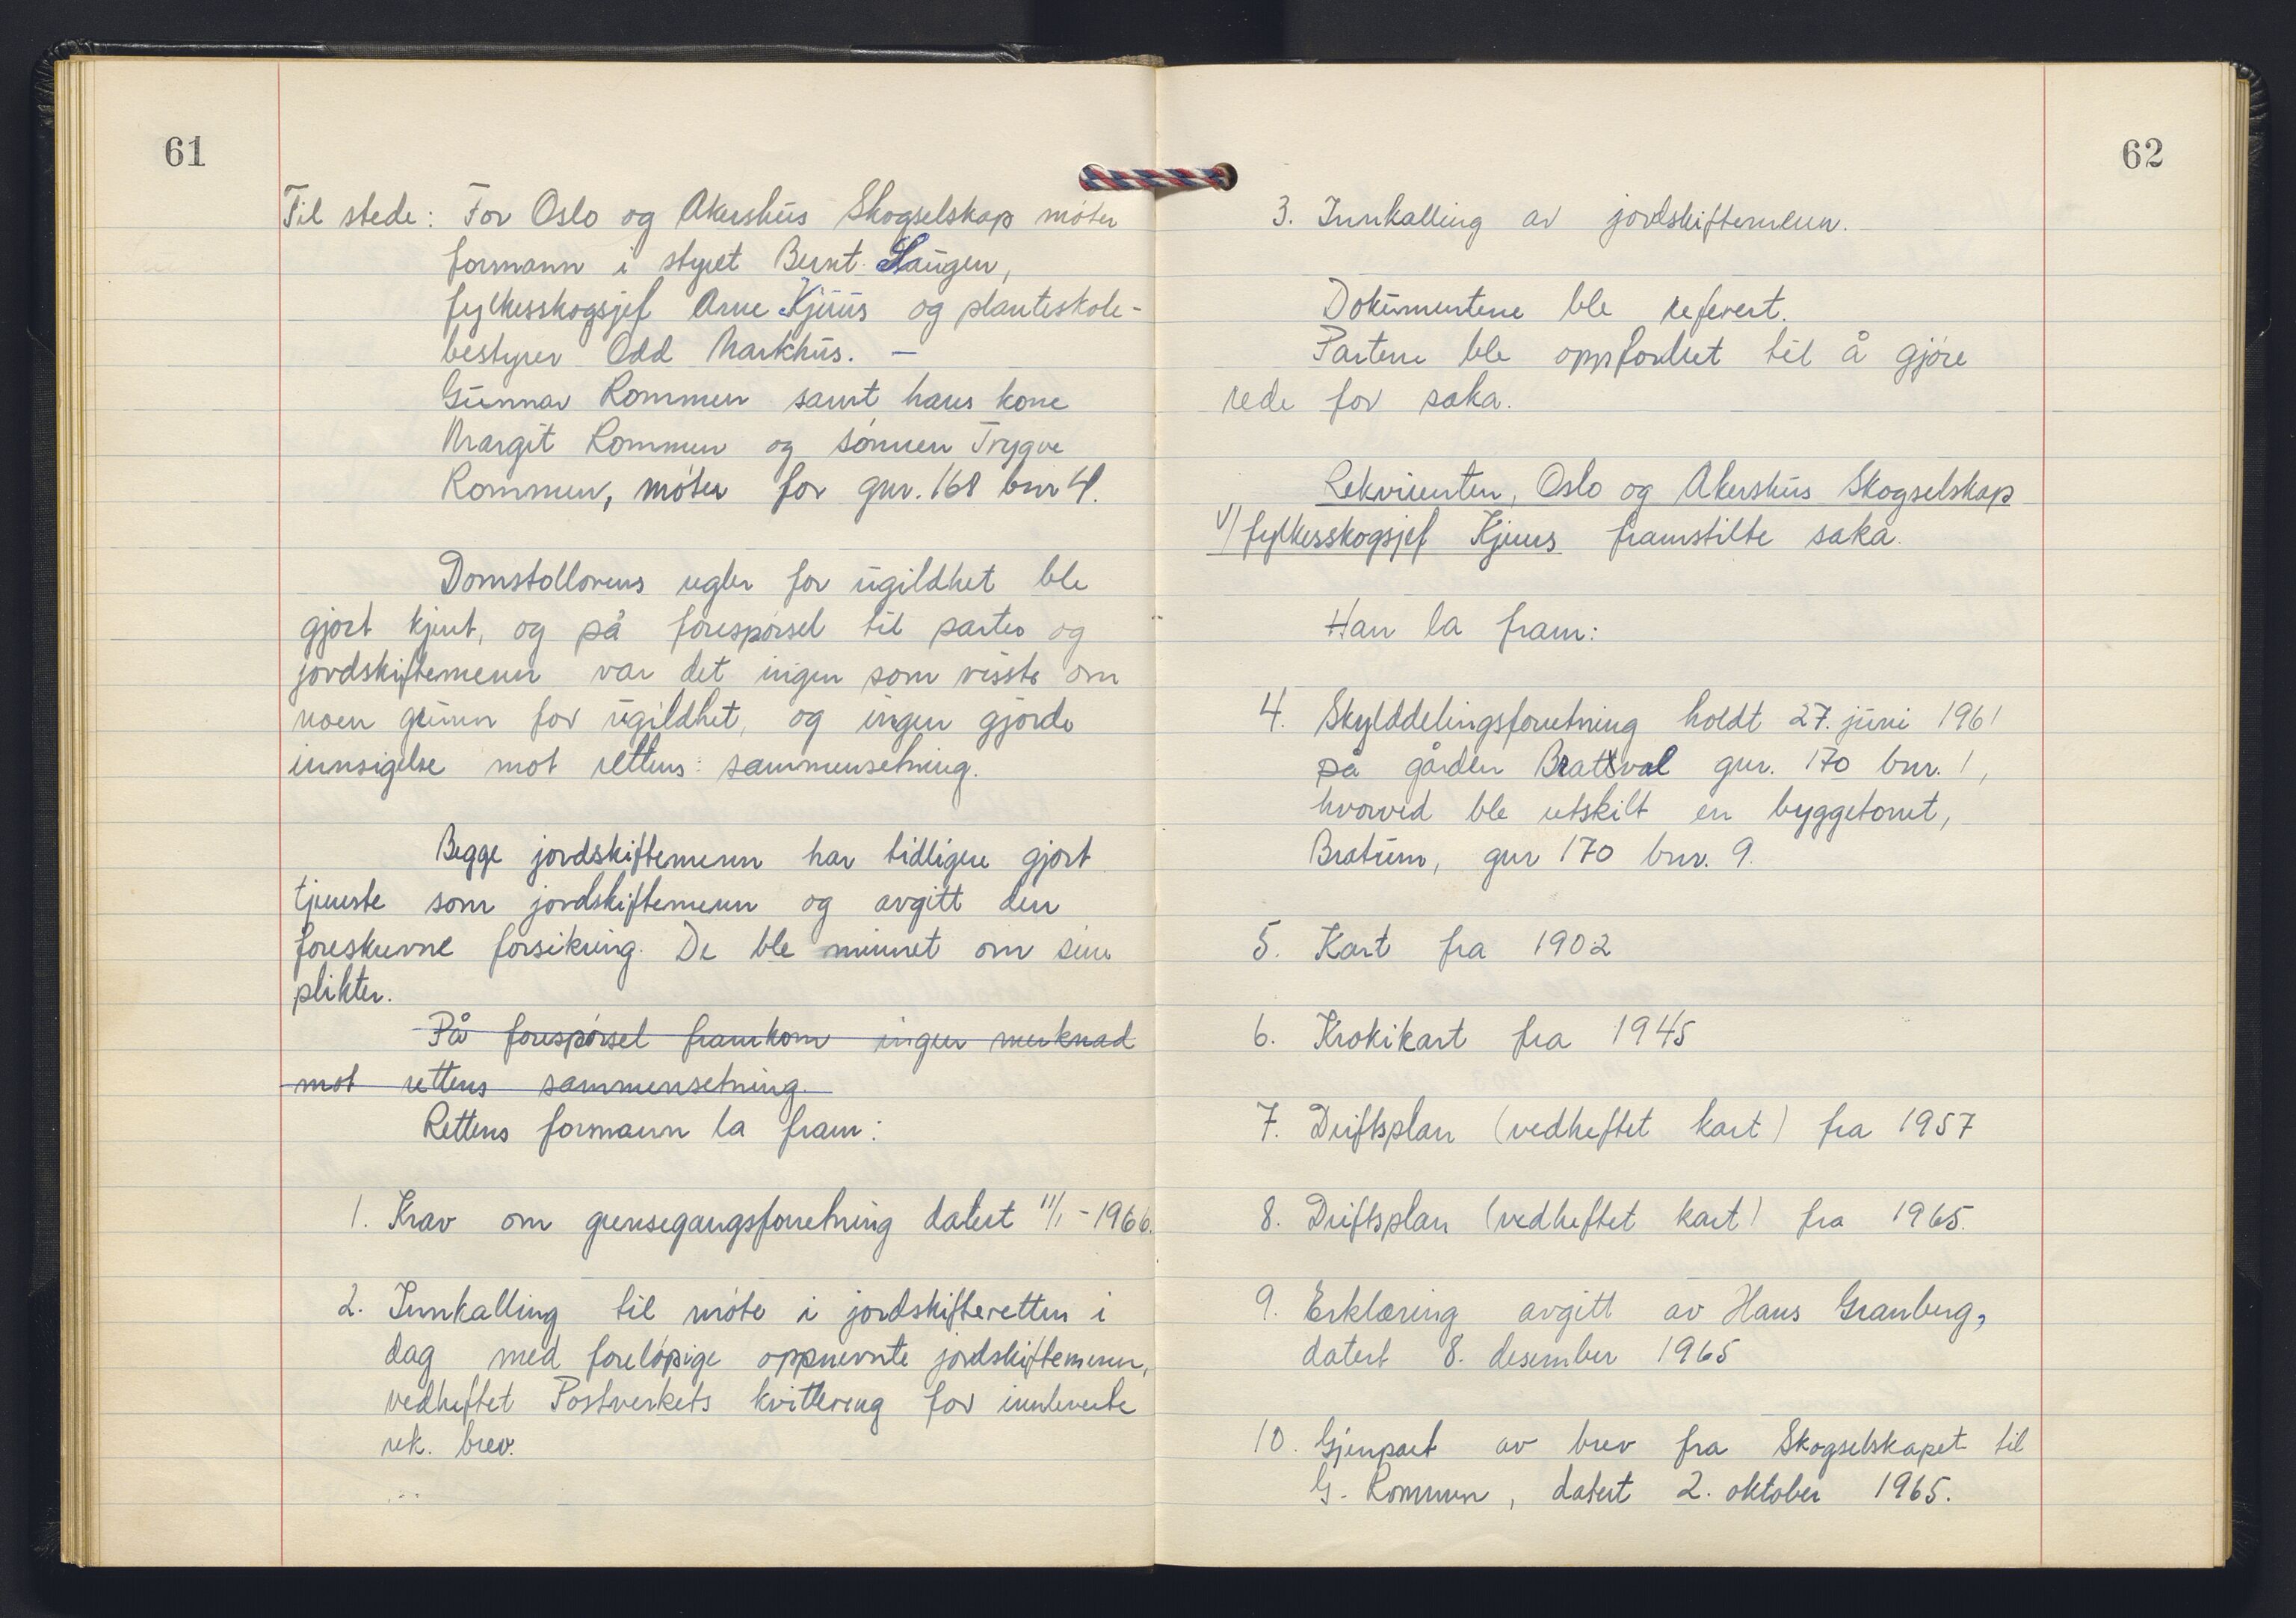 61
Til stede: For Oslo og Akershus Skogselskap møter
formann i styret Bernt Haugen,
fylkesskogsjef Arne Kjuus og planteskole-
bestyrer Odd Markhus. —
Gunnar Rommen samt hans kone
Margit Rommen og sønnen Trygve
Rommen, møter for gnr. 168 bnr 4.
Domstollovens regler for ugildhet ble
gjort kjent, og på forespørsel til parter og
jordskiftemenn var det ingen som visste om
noen grunn for ugildhet, og ingen gjorde
innsigelse mot rettens sammensetning.
Begge jordskiftemenn har tidligere gjort
tjeneste som jordskiftemenn og avgitt den
foreskrevne forsikring. De ble minnet om sine
plikter.
På forespørsel framkom ingen merknad
mot rettens sammensetning.
Rettens formann la fram:
1. Krav om grensegangsforretning datert 11/1 - 1966.
2. Innkalling til møte i jordskifteretten i
dag med foreløpige oppnevnte jordskiftemenn,
vedheftet Postverkets kvittering for innleverte
rek. brev.
62
3. Innkalling av jordskiftemenn.
Dokumentene ble referert.
Partene ble oppfordret til å gjøre
rede for saka.
Rekvirenten, Oslo og Akershus Skogselskap
v/ fylkesskogsjef Kjuus framstilte saka.
Han la fram:
4. Skylddelingsforretning holdt 27. juni 1961
på gården Bratsval gnr. 170 bnr. 1,
hvorved ble utskilt en byggetomt,
Bratum, gnr 170 bnr. 9.
5. Kart fra 1902
6. Krokikart fra 1945
7. Driftsplan (vedheftet kart) fra 1957
8. Driftsplan (vedheftet kart) fra 1965.
9. Erklæring avgitt av Hans Granberg,
datert 8. desember 1965
10. Gjenpart av brev fra Skogselskapet til
G. Rommen, datert 2. oktober 1965.